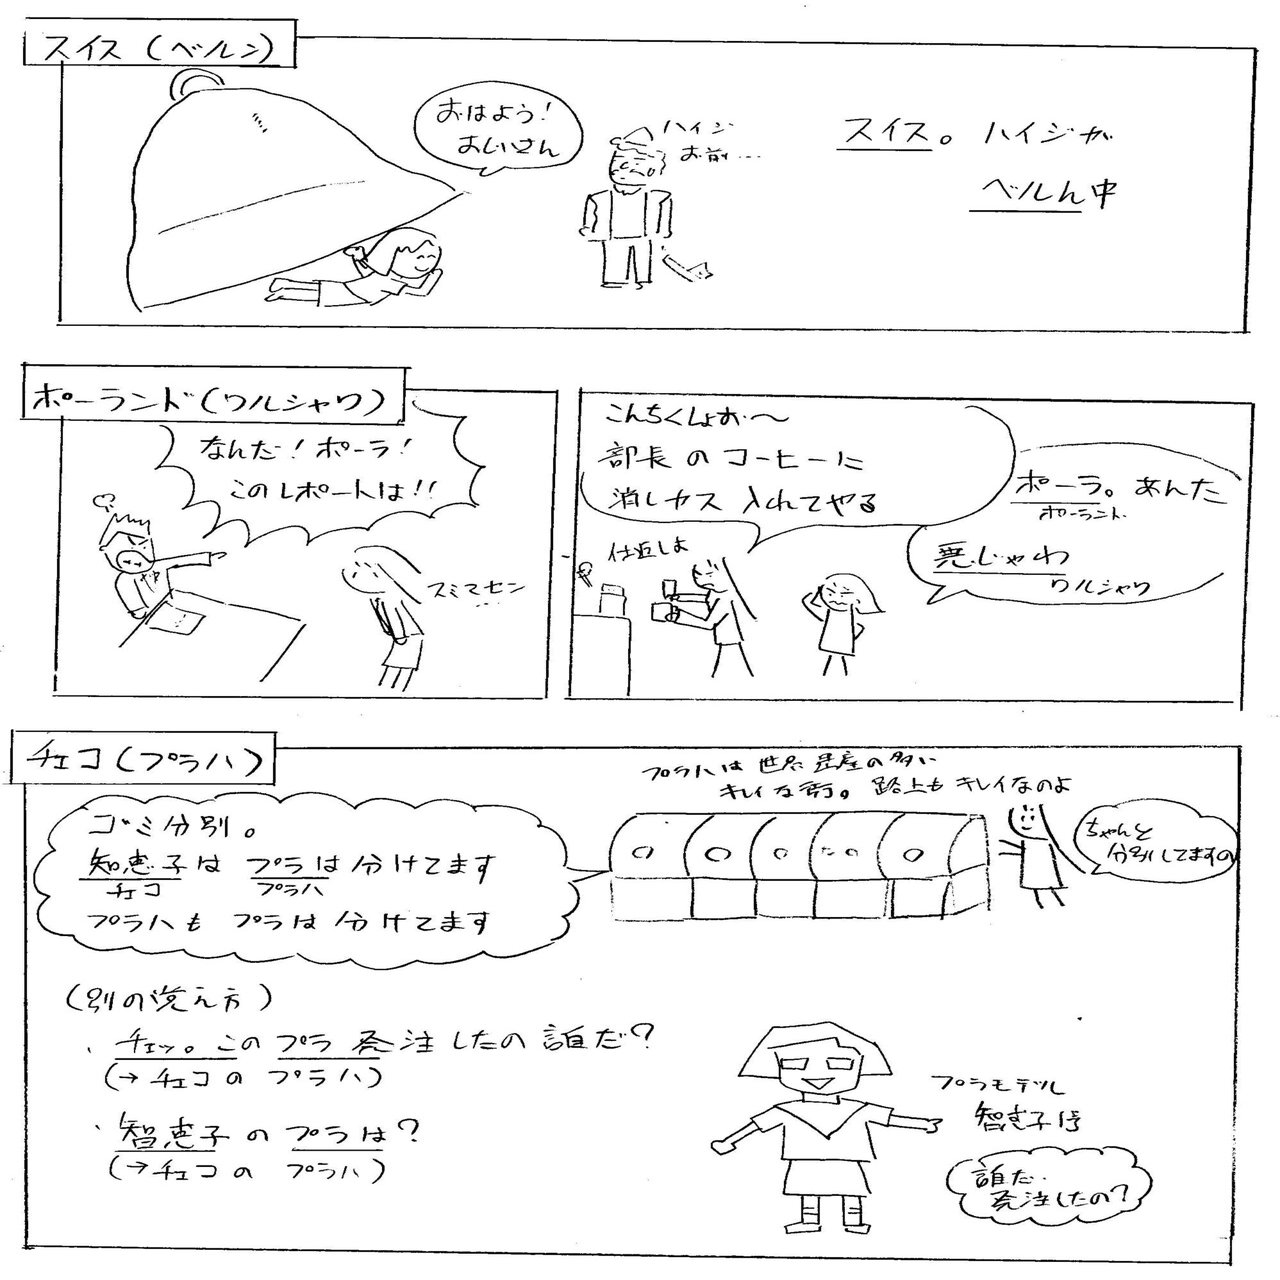 スイス(ベルン)
おはよう!
おじいさん
ハイジ
お前…
スイス。ハイジが
ベルん中
ポーランド(ワルシャワ)
なんだ!ポーラ!
このレポートは!!
スミマセン
…
こんちくしょお〜
部長のコーヒーに
消しカス入れてやる
仕返しよ
ポーラ。あんた
ポーランド
悪じゃわ
ワルシャワ
チェコ(プラハ)
プラハは世界遺産の多い
キレイな街。路上もキレイなのよ
ゴミ分別。
知恵子はプラは分けてます
チェコ プラハ
プラハもプラは分けてます
ちゃんと
分別してますの
(別の覚え方)
・チェッ。このプラ発注したの誰だ?
(→チェコのプラハ)
・智恵子のプラは?
(→チェコのプラハ)
プラモデル
智恵子号
誰だ
発注したの?